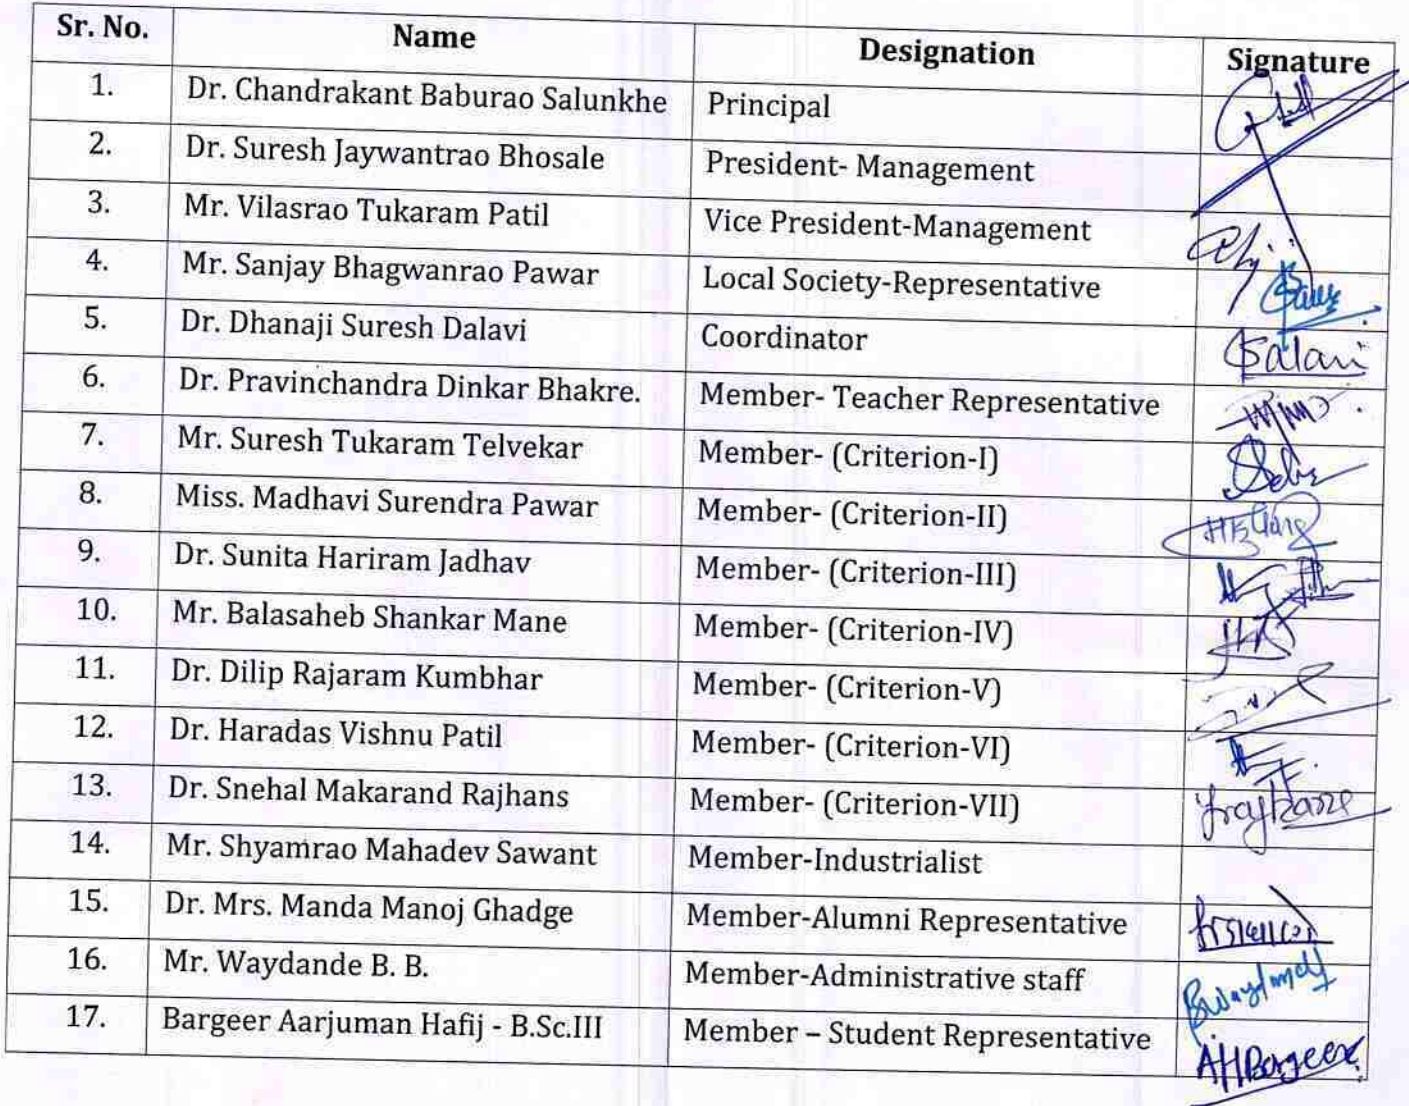 Sr. No. Name Designation Signature
1. Dr. Chandrakant Baburao Salunkhe Principal
2. Dr. Suresh Jaywantrao Bhosale President- Management
3. Mr. Vilasrao Tukaram Patil Vice President-Management
4. Mr. Sanjay Bhagwanrao Pawar Local Society-Representative
5. Dr. Dhanaji Suresh Dalavi Coordinator
6. Dr. Pravinchandra Dinkar Bhakre. Member- Teacher Representative
7. Mr. Suresh Tukaram Telvekar Member- (Criterion-I)
8. Miss. Madhavi Surendra Pawar Member- (Criterion-II)
9. Dr. Sunita Hariram Jadhav Member- (Criterion-III)
10. Mr. Balasaheb Shankar Mane Member- (Criterion-IV)
11. Dr. Dilip Rajaram Kumbhar Member- (Criterion-V)
12. Dr. Haradas Vishnu Patil Member- (Criterion-VI)
13. Dr. Snehal Makarand Rajhans Member- (Criterion-VII)
14. Mr. Shyamrao Mahadev Sawant Member-Industrialist
15. Dr. Mrs. Manda Manoj Ghadge Member-Alumni Representative
16. Mr. Waydande B. B. Member-Administrative staff
17. Bargeer Aarjuman Hafij - B.Sc.III Member – Student Representative AHBargeer